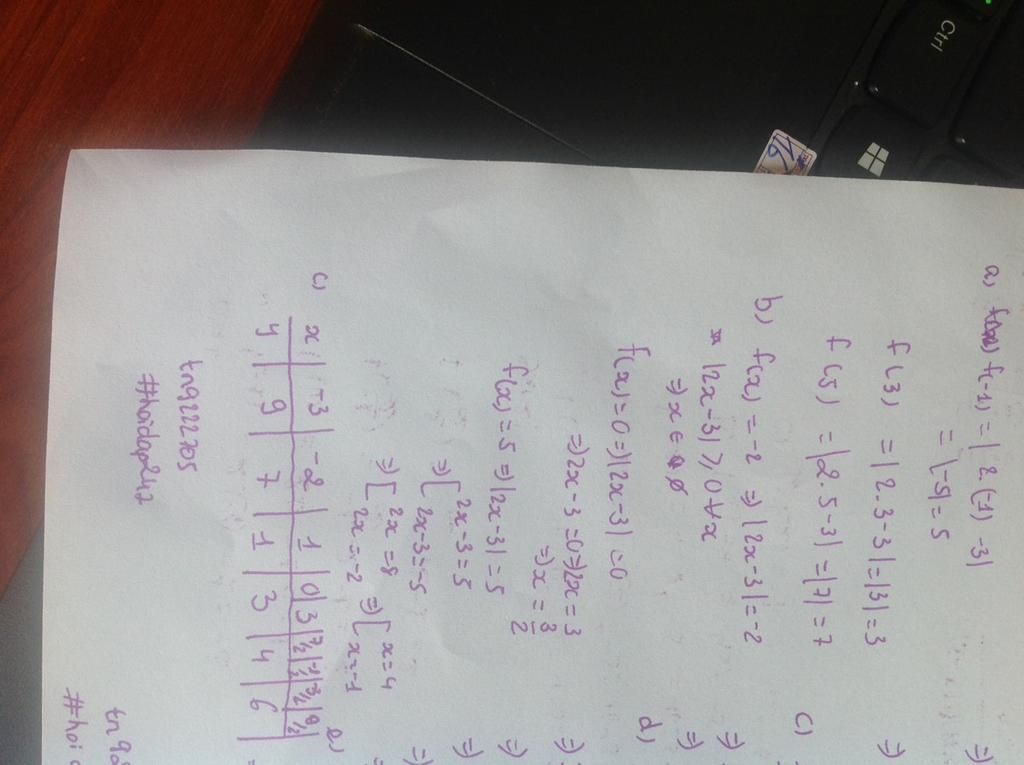 a) f(-1) = |2.(-1) -3|
= |-5| = 5
f(3) = |2.3-3| = |3| = 3
f(5) = |2.5-3| = |7| = 7
b) f(x) = -2 => |2x-3| = -2
|2x-3| ⩾ 0 ∀x
=> x ∈ ∅
f(x) = 0 => |2x-3| = 0
=> 2x-3 = 0 => 2x = 3
=> x = 3/2
f(x) = 5 => |2x-3| = 5
=> [ 2x-3 = 5
2x-3 = -5
=> [ 2x = 8 => [ x = 4
2x = -2 x = -1
c)
x | -3 | -2 | 1 | 0 | 3
y | 9 | 7 | 1 | 3 | 4 | 6
tn922705
#hoidap247
c)
d)
e)
=>
=>
=>
=>
=>
=>
=>
=>
tn92
#hoi
Ctrl